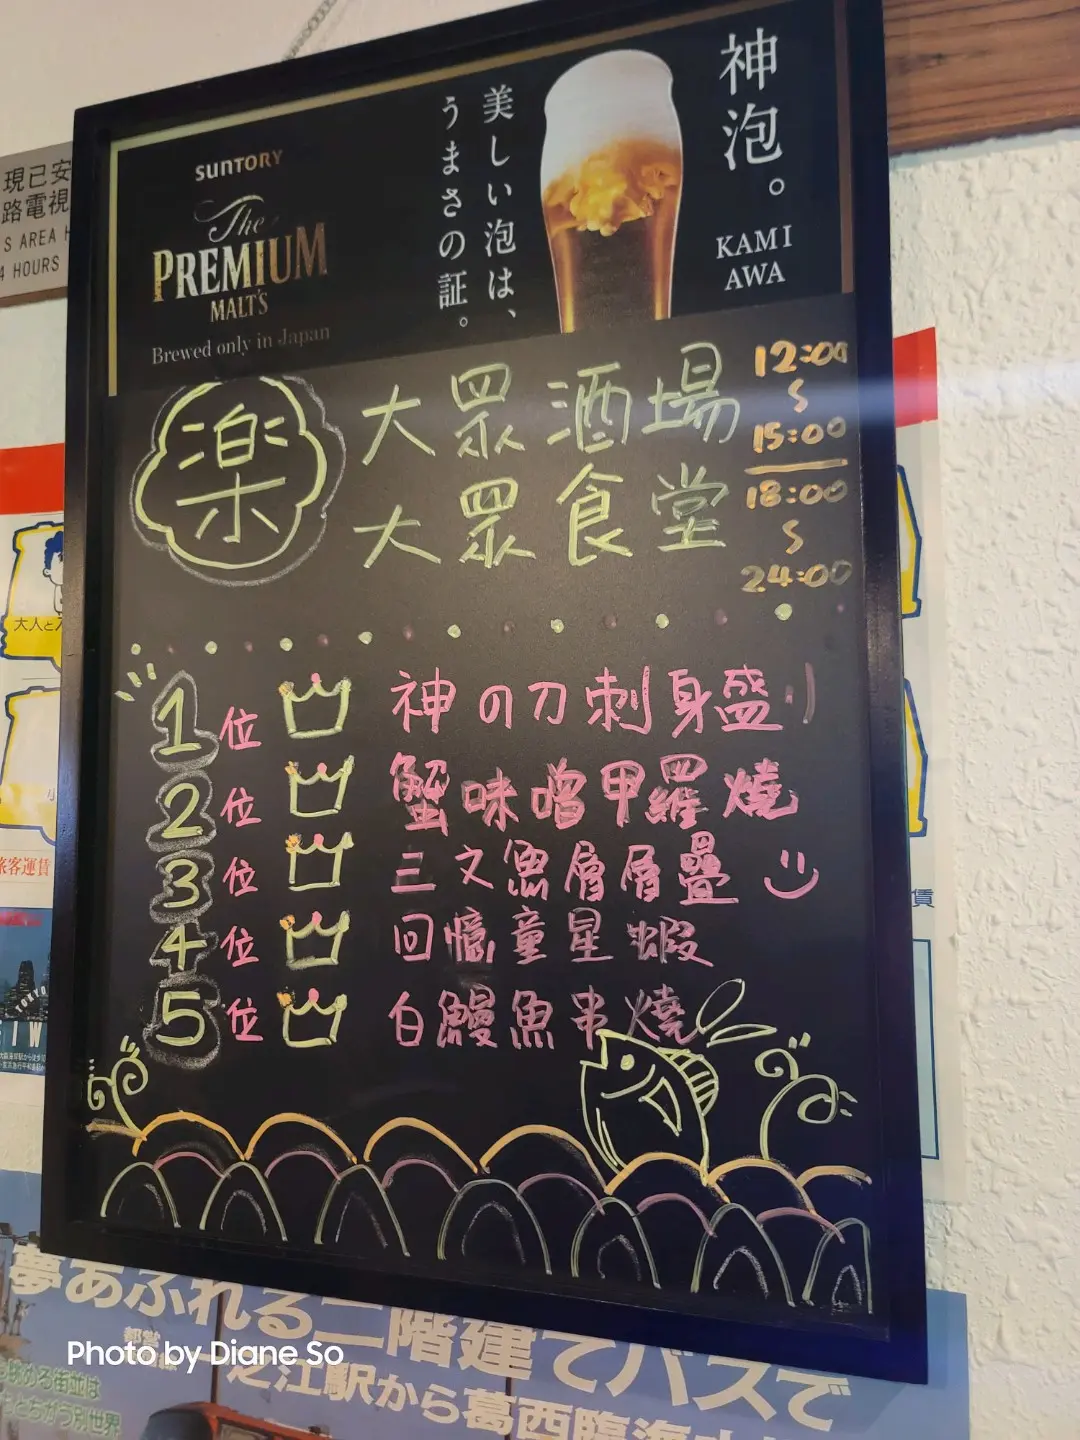 SUNTORY
The
PREMIUM
MALT'S
Brewed only in Japan
神泡。
KAMI
AWA
美しい泡は、
うまさの証。
楽
大眾酒場
大眾食堂
12:00
15:00
18:00
24:00
1位 神の刀刺身盛
2位 蟹味噌甲羅燒
3位 三文魚層層疊
4位 回憶童星蝦
5位 白鰻魚串燒
現已安
路電視
S AREA
4 HOURS
大人と
旅客運賃
賃
TOKYO
夢あふれる二階建てバスで
都営
之江駅から葛西臨海
眺める街並は
ちがう別世界
Photo by Diane So